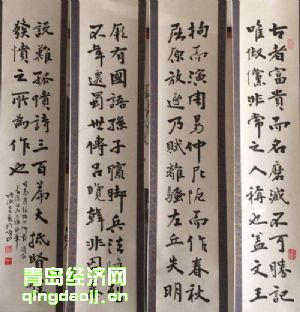 古者富貴而名磨滅不可勝記
唯俶儻非常之人稱也蓋文王
拘而演周易仲尼阨而作春秋
屈原放逐乃賦離騷左丘失明
厥有國語孫子臏腳兵法修列
不韋遷蜀世傳呂覽韓非囚秦
說難孤憤詩三百篇大抵賢聖
發憤之所為作也
青岛经济网
qingdaojj.cn